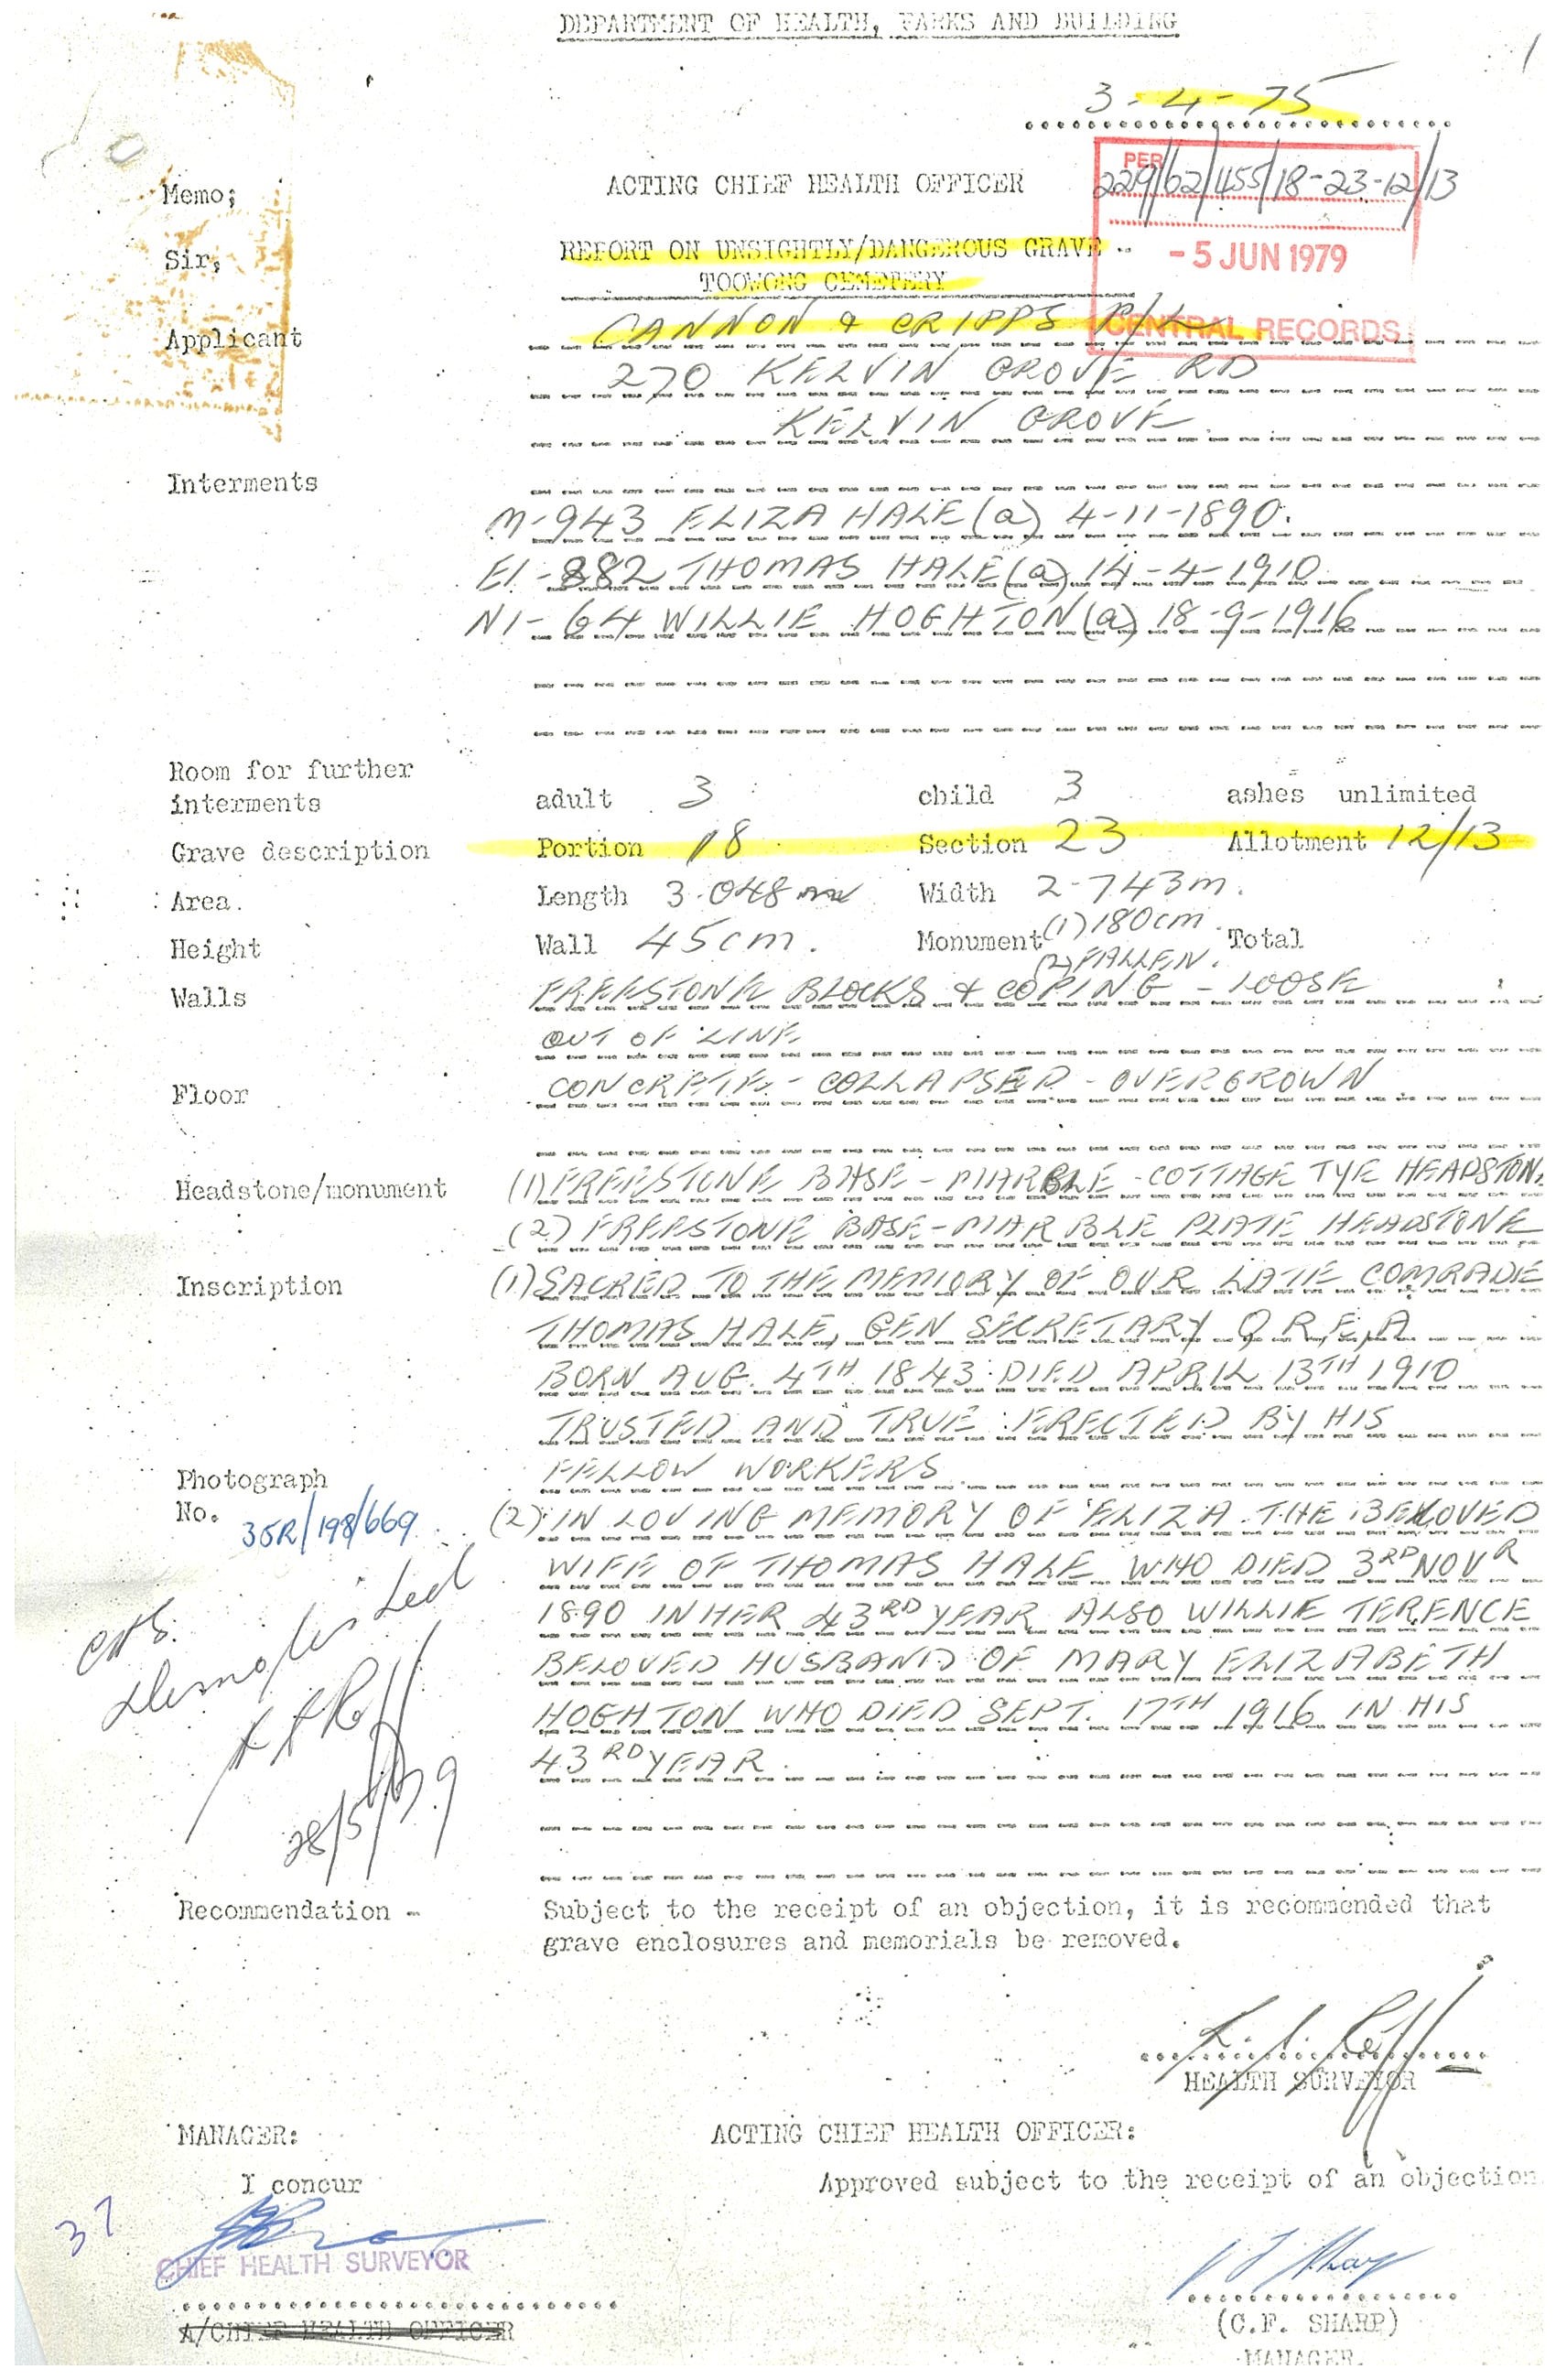 DEPARTMENT OF HEALTH, PARKS AND BUILDING
1
3-4-75
Memo; ACTING CHIEF HEALTH OFFICER
PER
229/62/455/18-23-12/13
Sir, REPORT ON UNSIGHTLY/DANGEROUS GRAVE --
TOOWONG CEMETERY
-5 JUN 1979
CENTRAL RECORDS
Applicant CANNON & CRIPPS P/L
270 KELVIN GROVE RD
KELVIN GROVE
Interments
M-943 ELIZA HALE (a) 4-11-1890.
E1-882 THOMAS HALE (a) 14-4-1910
N1-64 WILLIE HOGHTON (a) 18-9-1916
Room for further
interments adult 3 child 3 ashes unlimited
Grave description Portion 18 Section 23 Allotment 12/13
Area. Length 3.048 m Width 2.743m.
Height Wall 45cm. Monument (1) 180cm. Total
(2) FALLEN.
Walls FREESTONE BLOCKS & COPING - LOOSE
OUT OF LINE
Floor CONCRETE - COLLAPSED - OVERGROWN
Headstone/monument (1) FREESTONE BASE - MARBLE - COTTAGE TYE HEADSTONE
(2) FREESTONE BASE - MARBLE PLATE HEADSTONE
Inscription (1) SACRED TO THE MEMORY OF OUR LATE COMRADE
THOMAS HALE, GEN SECRETARY Q.R.E,A
BORN AUG. 4TH 1843 DIED APRIL 13TH 1910
TRUSTED AND TRUE : ERECTED BY HIS
FELLOW WORKERS
Photograph
No. 35R/198/669
(2) IN LOVING MEMORY OF ELIZA THE BELOVED
WIFE OF THOMAS HALE WHO DIED 3RD NOVR
1890 IN HER 43RD YEAR ALSO WILLIE TERENCE
BELOVED HUSBAND OF MARY ELIZABETH
HOGHTON WHO DIED SEPT. 17TH 1916 IN HIS
43RD YEAR.
CHS.
Demolished
28/5/79
Recommendation - Subject to the receipt of an objection, it is recommended that
grave enclosures and memorials be removed.
HEALTH SURVEYOR
MANAGER: ACTING CHIEF HEALTH OFFICER:
I concur Approved subject to the receipt of an objection
37
CHIEF HEALTH SURVEYOR
A/CHIEF HEALTH OFFICER
(C.F. SHARP)
MANAGER.